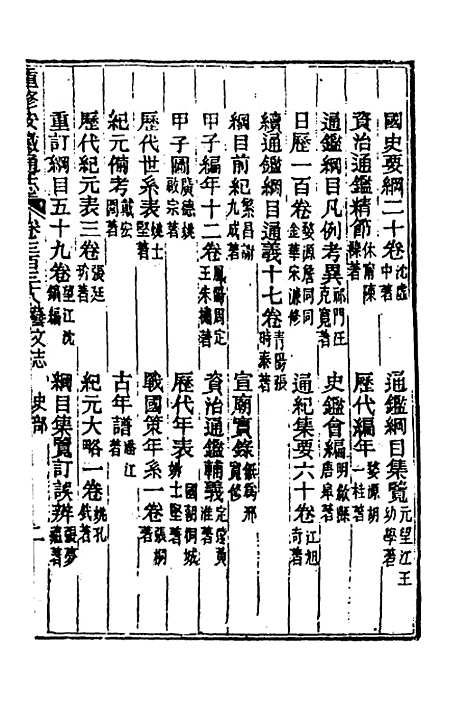 國史要綱二十卷沈虛中著 通鑑綱目集覽元望江王幼學著
資治通鑑精節休甯陳櫟著 歷代編年婺源胡一桂著
通鑑綱目凡例考異祁門汪克寬著 史鑑會編明歙縣唐皐著
日歷一百卷婺源詹同同金華宋濂修 通紀集要六十卷江旭奇著
續通鑑綱目通義十七卷青陽張時泰著
綱目前紀繁昌謝九成著 宣廟實錄邢寬修
甲子編年十二卷鳳陽周定王朱橚著 資治通鑑輔義定遠黃淮著
甲子圖廣德姚啟宗著 歷代年表國朝桐城姚士堅著
歷代世系表姚士堅著 戰國策年系一卷張桐著
紀元備考戴宏閭著 古年譜潘江著
歷代紀元表三卷張廷玠著 紀元大略一卷姚孔鋠著
重訂綱目五十九卷望江沈鎬編 綱目集覽訂誤辨張夢著
重修安徽通志 卷三百三十八 藝文志 史部 二